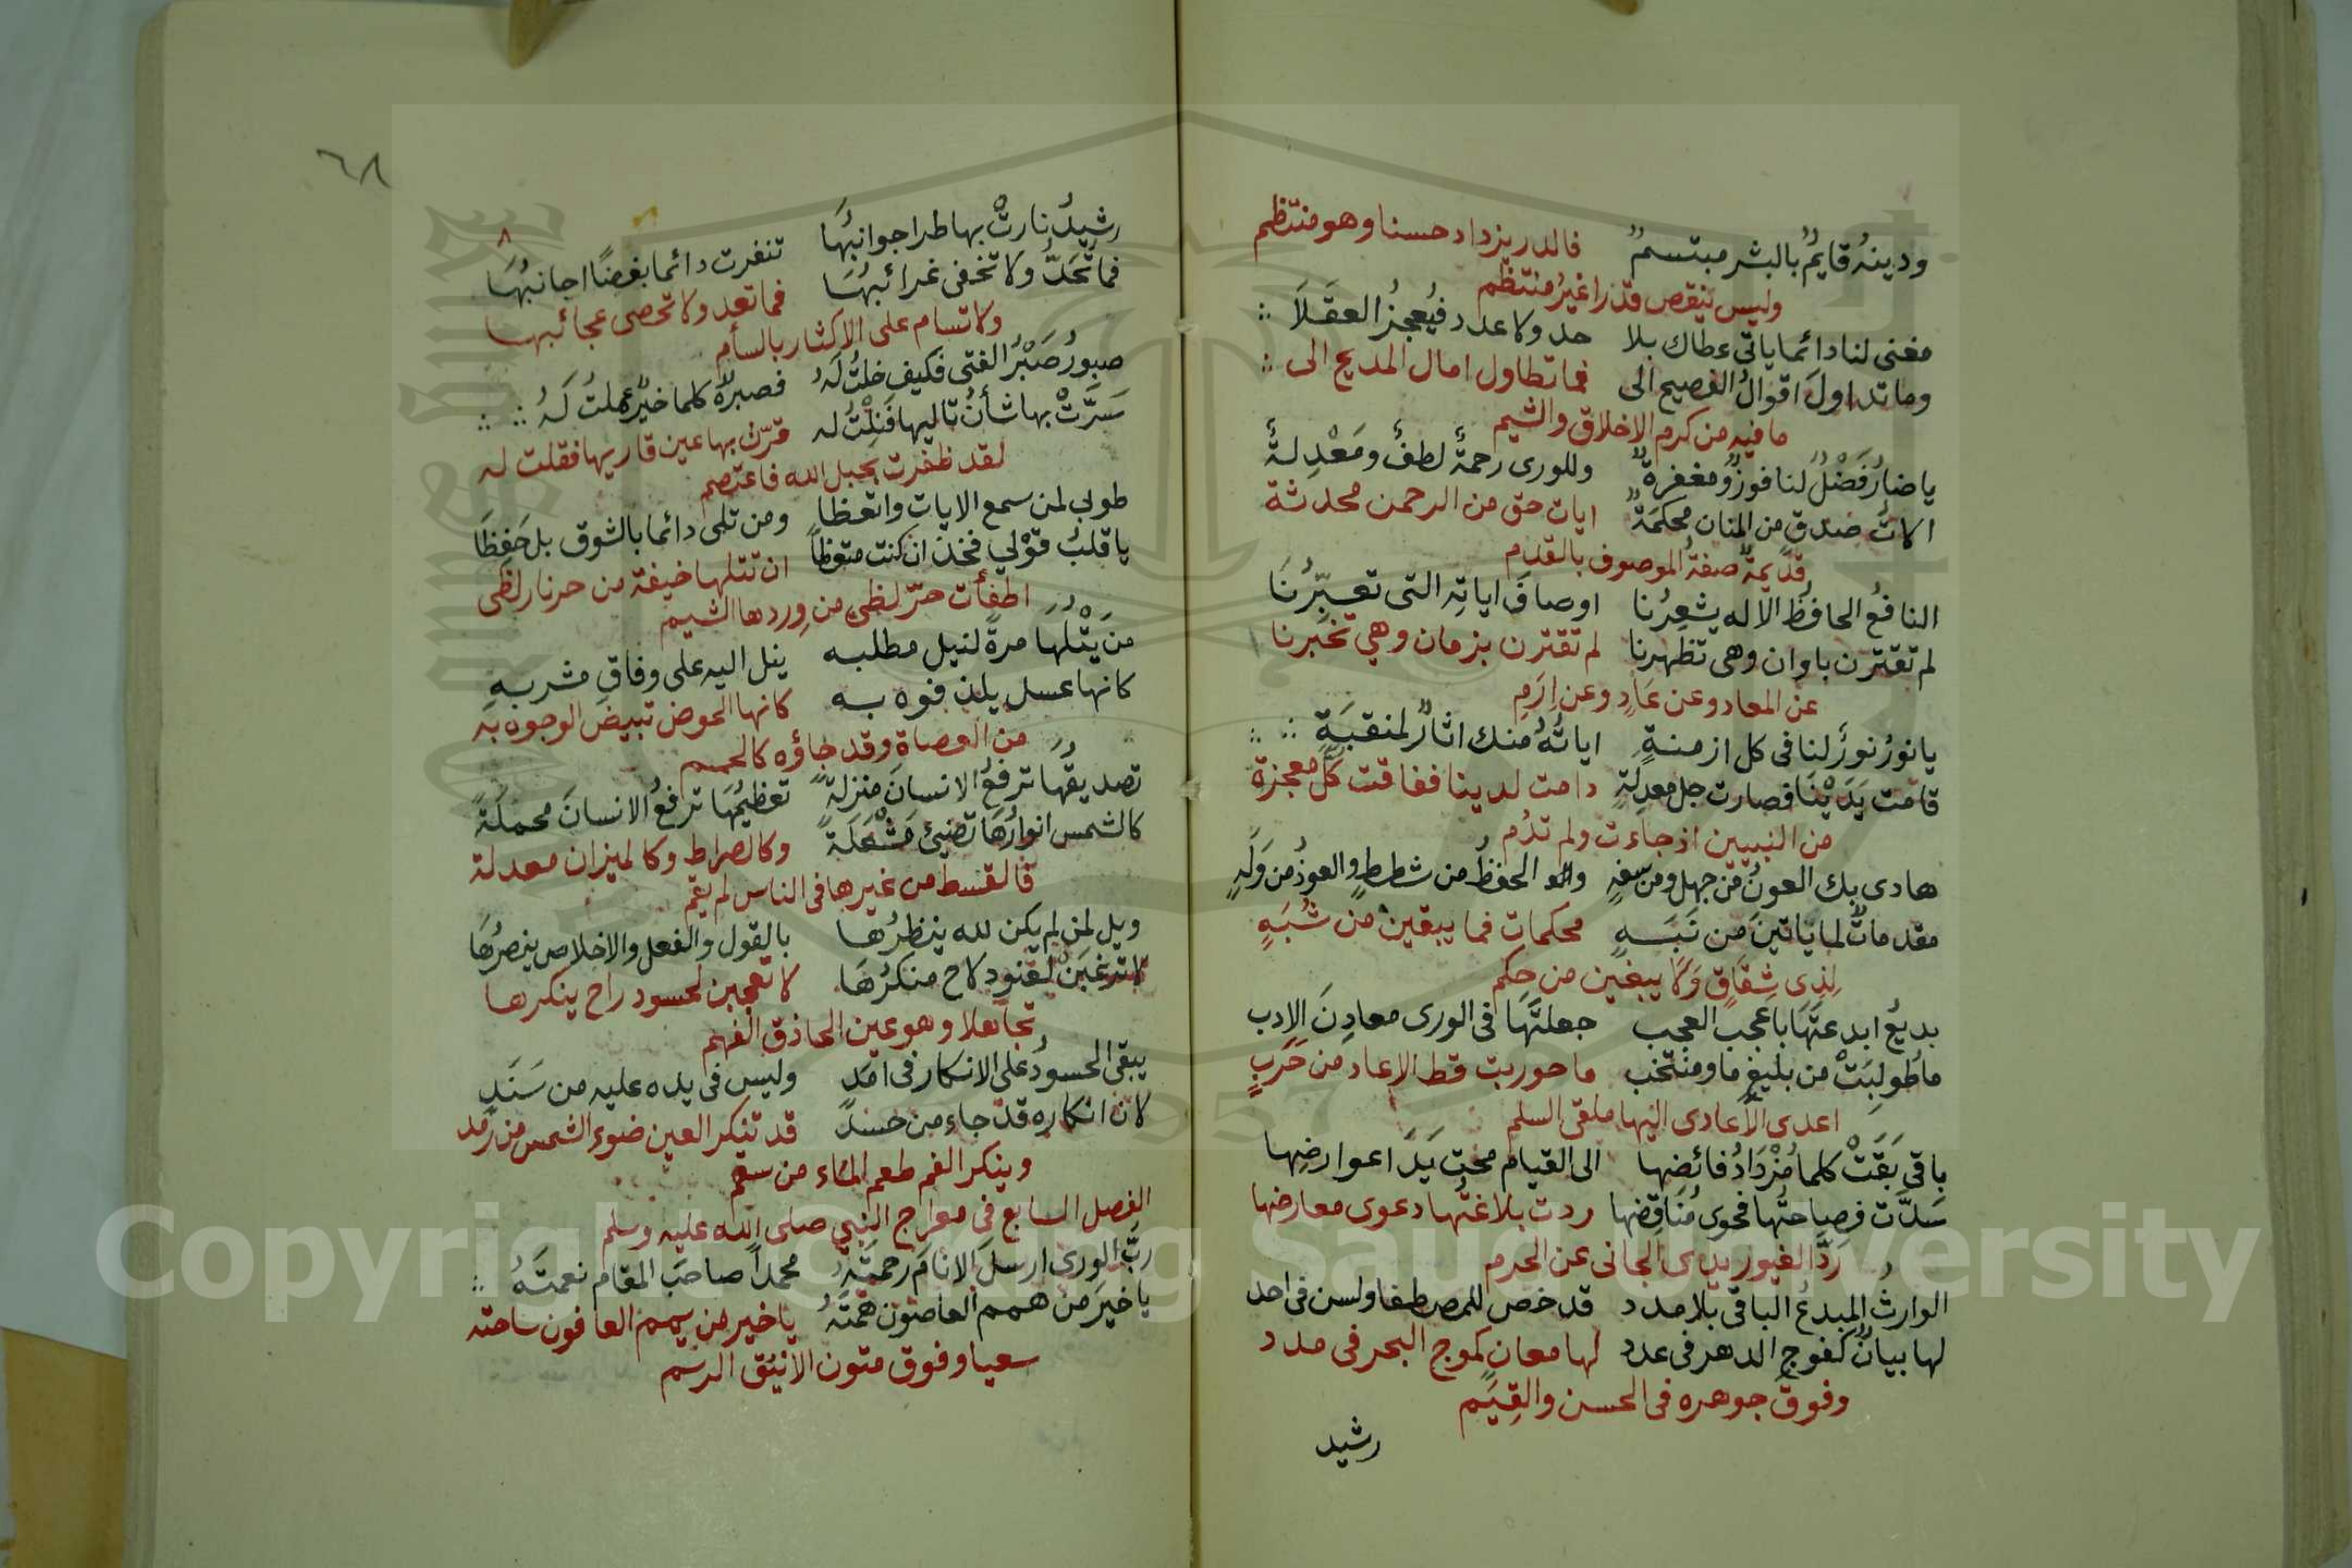 ودينه قايم بالبشر مبتسم فالدر يزداد حسنا وهو منتظم
وليس ينقص قدرا غير منتظم
مغنى لنا دائما ياتى عطاك بلا حد ولا عدد فيعجز العقلا
وما تداول اقوال الفصيح الى فما تطاول امال المديح الى
ما فيه من كرم الاخلاق والشيم
يا ضار فضل لنا فوز ومغفرة وللورى رحمة لطف ومعدلة
الات صدق من المنان محكمة ايات حق من الرحمن محدثة
قديمة صفة الموصوف بالقدم
النافع الحافظ الاله يشعرنا اوصاف اياته التى تعبرنا
لم تقترن باوان وهى تظهرنا لم تقترن بزمان وهي تخبرنا
عن المعاد وعن عاد وعن ارم
يا نور نور لنا فى كل ازمنة اياته منك اثار لمنقبة
قامت يدينا فصارت جل معدلة دامت لدينا ففاقت كل معجزة
من النبيين اذ جاءت ولم تدم
هادى بك العون من جهل ومن سفه الحفظ من شطط والعوذ من وله
مقدمات لما ياتين من نبه محكمات فما يبقين من شبه
لذى شقاق ولا يبغين من حكم
بديع ابدعتها باعجب العجب جعلتها فى الورى معادن الادب
ما طولبت من بليغ ما ومنتخب ما حوربت قط الا عاد من حرب
اعدى الاعادى اليها ملقى السلم
باقى بقت كلما مزداد فائضها الى القيام محت يد اعوارضها
سدت فصاحتها فحوى مناقضها ردت بلاغتها دعوى معارضها
رد الغيور يدى الجانى عن الحرم
الوارث المبدع الباقى بلا مدد قد خص للمصطفا وليس فى احد
لها بيان كفوج الدهر فى عدد لها معان كموج البحر فى مدد
وفوق جوهره فى الحسن والقيم
رشيد
٦٨
٨
رشيد نارت بها طرا جوانبها تنفرت دائما بغضا اجانبها
فما تحد ولا تخفى غرائبها فما تعد ولا تحصى عجائبها
ولا تسام على الاكثار بالسأم
صبور صبر الفتى فكيف خلت له فصبره كلما خير عملت له
سرت بها شأن تاليها فنلت له قرت بها عين قاريها فقلت له
لقد ظفرت بحبل الله فاعتصم
طوبى لمن سمع الايات واتعظا ومن تلى دائما بالشوق بل حفظا
يا قلب قولي فخذ ان كنت متعظا ان تتلها خيفة من حر نار لظى
اطفأت حر لظى من وردها الشيم
من يتلها مرة لنيل مطلبه ينل اليه على وفاق مشربه
كانها عسل يلذ فوه به كانها الحوض تبيض الوجوه به
من العصاة وقد جاؤه كالحمم
تصديقها ترفع الانسان منزلة تعظيمها ترفع الانسان محملة
كالشمس انوارها تضيئ مشعلة وكالصراط وكالميزان معدلة
فالقسط من غيرها فى الناس لم يقم
ويل لمن لم يكن لله ينظرها بالقول والفعل والاخلاص ينصرها
لا ترغبن لقنود لاح منكرها لا تعجبن لحسود راح ينكرها
تجاهلا وهو عين الحاذق الفهم
يبقى الحسود على الانكار فى امد وليس فى يده عليه من سند
لان انكاره قد جاء من حسد قد تنكر العين ضوء الشمس من رمد
وينكر الفم طعم الماء من سقم
الفصل السابع فى معراج النبي صلى الله عليه وسلم
رب الورى ارسل الانام رحمته محمدا صاحب المقام نعمته
يا خير من همم العاصون همته يا خير من يمم العافون ساحته
سعيا وفوق متون الانيق الرسم
Copyright © King Saud University
1957